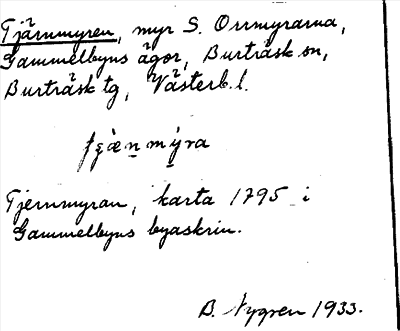 Tjärnmyren, myr S. Orrmyrarna,
Gammelbyns ägor, Burträsk sn,
Burträsk tg, Västerb. l.
myra
Tjernmyran, karta 1795 i
Gammelbyns byaskrin.
B. Nygren 1933.